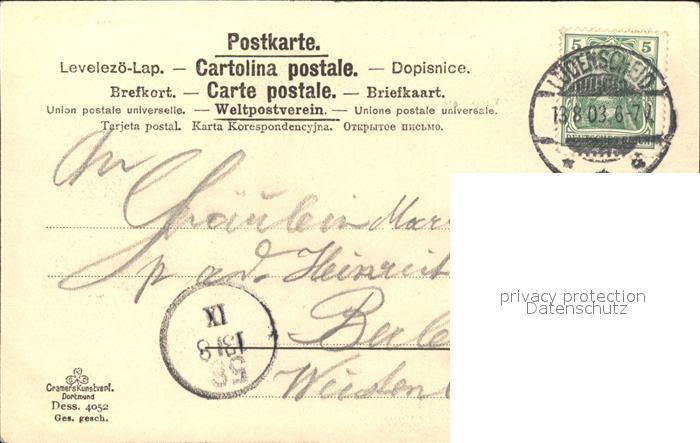 Postkarte.
Levelezö-Lap. — Cartolina postale. — Dopisnice.
Brefkort. — Carte postale. — Briefkaart.
Union postale universelle. — Weltpostverein. — Unione postale universale.
Tarjeta postal. Karta Korespondencyjna. Открытое письмо.
5 5
LÜDENSCHEID
13.8.03.6-7V.
DEUTSCHES REICH
An
Fräulein Mar
p. ad. Heinrich
Berl
privacy protection
Datenschutz
IX
13|8
58
Cramers Kunstverl.
Dortmund
Dess. 4052
Ges. gesch.